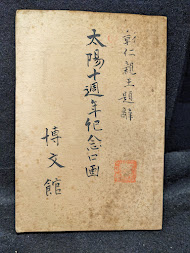 彰仁親王題辞
太陽十週年紀念口画
博文館